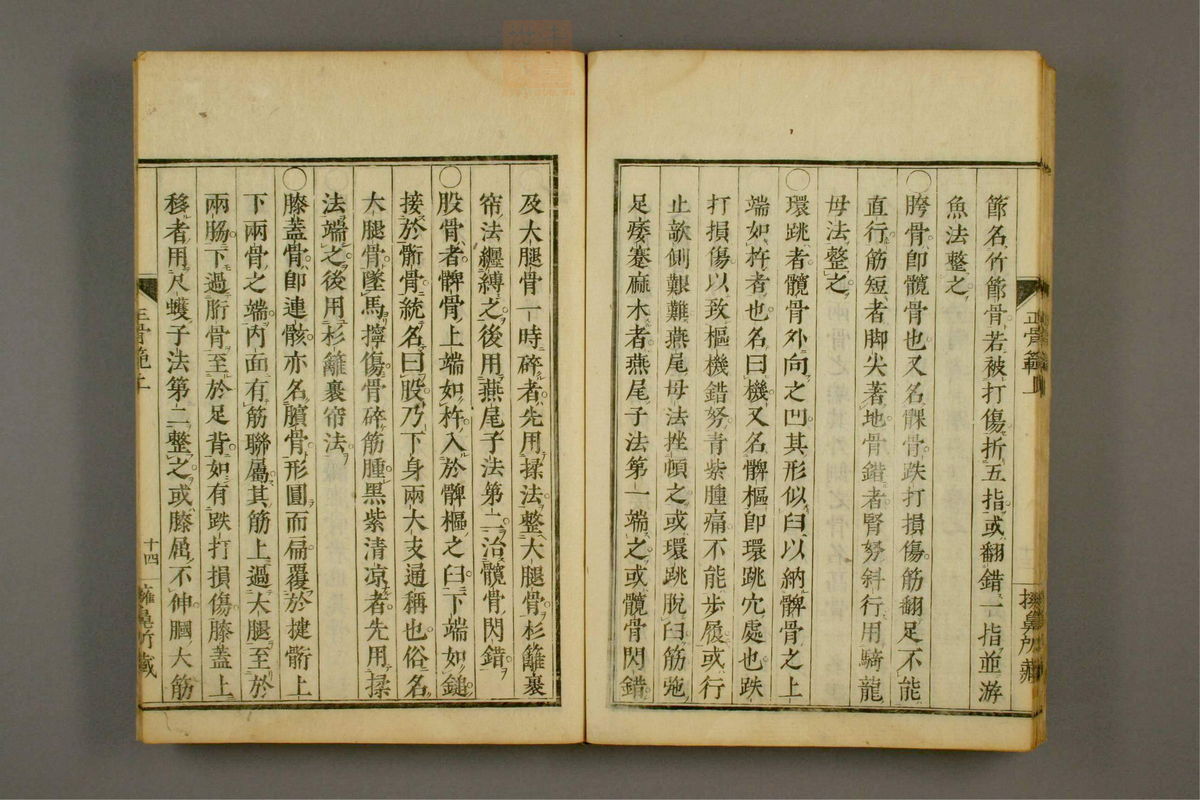 節名竹節骨若被打傷折五指或翻錯一指並游
魚法整之
○胯骨卽髖骨也又名髁骨跌打損傷筋翻足不能
直行筋短者脚尖著地骨錯者臀努斜行用騎龍
母法整之
○環跳者髖骨外向之凹其形似臼以納髀骨之上
端如杵者也名曰機又名髀樞卽環跳穴處也跌
打損傷以致樞機錯努青紫腫痛不能步履或行
止欹側艱難燕尾母法挫頓之或環跳脫臼筋㢮
足痿蹇麻木者燕尾子法第一端之或髖骨閃錯
及大腿骨一時碎者先用揉法整大腿骨杉籬裹
帘法纏縛之後用燕尾子法第二治髖骨閃錯
○股骨者髀骨上端如杵入於髀樞之臼下端如鎚
接於䯒骨統名曰股乃下身兩大支通稱也俗名
大腿骨墜馬擰傷骨碎筋腫黑紫清凉者先用揉
法端之後用杉籬裹帘法
○膝蓋骨卽連骸亦名臏骨形圓而扁覆於揵䯒上
下兩骨之端內面有筋聯屬其筋上過大腿至於
兩脇下過胻骨至於足背如有跌打損傷膝蓋上
移者用尺蠖子法第二整之或膝屈不伸膕大筋
正骨範上
十四